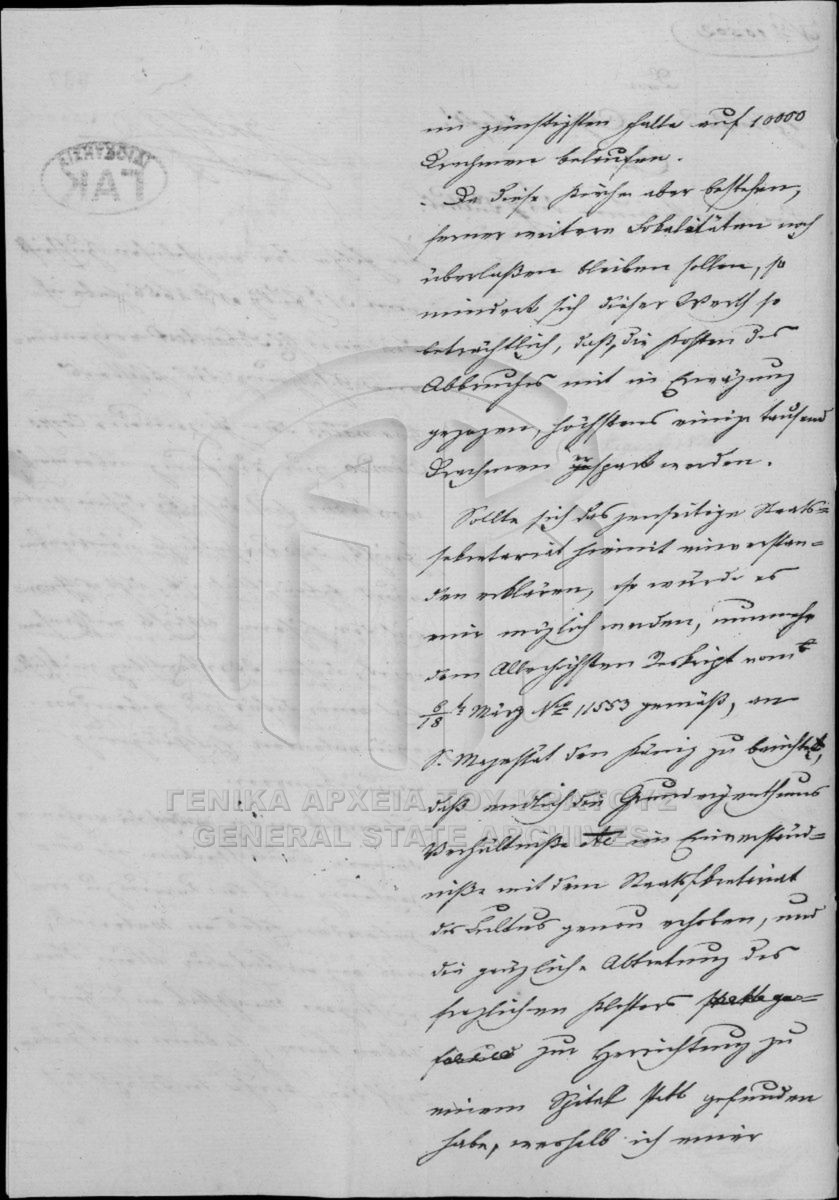 im günstigsten Falle auf 10000
Drachmen belaufen.
Da diese Kirche aber bestehen,
ferner weitere Lokalitäten noch
überlaßen bleiben sollen, so
mindert sich dieser Werth so
beträchtlich, daß, die Kosten des
Abbruches mit in Erwägung
gezogen, höchstens einige tausend
Drachmen erspart werden.
Sollte sich das jenseitige Staats-
sekretariat hiemit einverstan-
den erklären, so würde es
mir möglich werden, nunmehr
dem Allerhöchsten Reskript vom
6/18 t. März No 11553 gemäß, an
S. Majestät den König zu berichten,
daß endlich die Grundeigenthums
Verhältniße im Einverständ-
niße mit dem Staatssekretariat
des Cultus genau erhoben, und
die gänzliche Abtretung des
fraglichen Klosters
zur Herrichtung zu
einem Spital statt gefunden
habe, weshalb ich einer
ΓΑΚ
ΓΕΝΙΚΑ ΑΡΧΕΙΑ ΤΟΥ ΚΡΑΤΟΥΣ
GENERAL STATE ARCHIVES